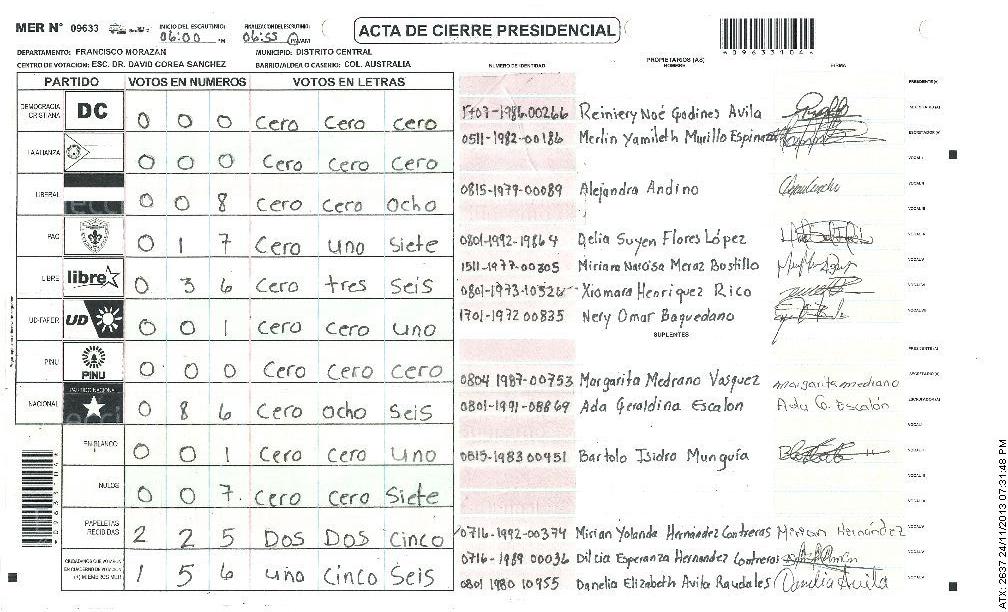 MER N° 09633 INICIO DEL ESCRUTINIO: 06:00 PM FINALIZACIÓN DEL ESCRUTINIO: 06:55 AM ACTA DE CIERRE PRESIDENCIAL
DEPARTAMENTO: FRANCISCO MORAZAN MUNICIPIO: DISTRITO CENTRAL
CENTRO DE VOTACION: ESC. DR. DAVID COREA SANCHEZ BARRIO/ALDEA O CASERIO: COL. AUSTRALIA
PARTIDO VOTOS EN NUMEROS VOTOS EN LETRAS
DEMOCRACIA CRISTIANA DC 0 0 0 Cero Cero cero
LA ALIANZA 0 0 0 Cero Cero Cero
LIBERAL 0 0 8 Cero Cero Ocho
PAC 0 1 7 Cero Uno Siete
LIBRE libre 0 3 6 Cero tres Seis
UD-FAPER UD 0 0 1 Cero Cero uno
PINU PINU 0 0 0 Cero Cero Cero
NACIONAL PARTIDO NACIONAL 0 8 6 Cero Ocho Seis
EN BLANCO 0 0 1 Cero Cero uno
NULOS 0 0 7. Cero Cero Siete
PAPELETAS RECIBIDAS 2 2 5 DOS DOS Cinco
1 5 6 Uno Cinco Seis
NUMERO DE IDENTIDAD PROPIETARIOS (AS) NOMBRE FIRMA
1707-1986.00266 Reiniery Noé Godines Avila
0511-1982-00186 Merlin Yamileth Murillo Espinoza
0815-1979-00089 Alejandra Andino
0801-1992-19864 Delia Suyen Flores López
1511-1977-00305 Miriam Narcisa Meraz Bustillo
0801-1973-10526 Xiomara Henriquez Rico
1701-1972 00835 Nery Omar Baquedano
SUPLENTES
0804 1987-00753 Margarita Medrano Vasquez margarita medrano
0801-1991-08869 Ada Geraldina Escalon Ada G. Escalón
0615-1983 00951 Bartolo Isidro Munguía
0716-1992-00374 Mirian Yolanda Hernández Contreras Mirian Hernández
0716-1989 00036 Dilcia Esperanza Hernandez Contreras
0801 1980 10955 Danelia Elizabeth Avila Raudales Danelia Avila
ATX- 2637 24/11/2013 07:31:48 PM